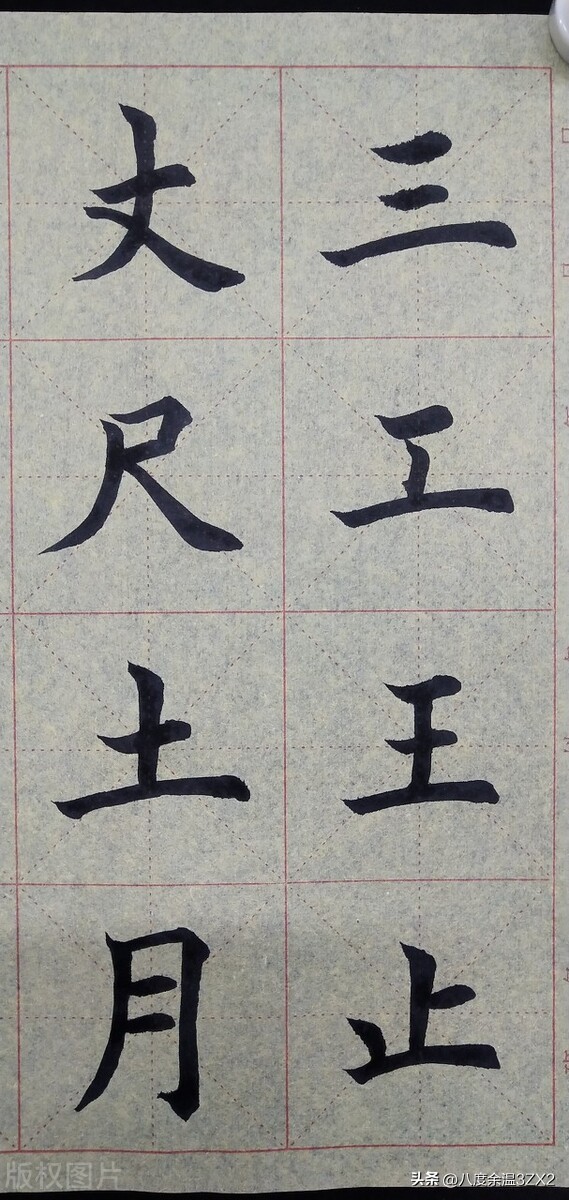 三工王止
丈尺土月
版权图片
头条 @八度余温3ZX2